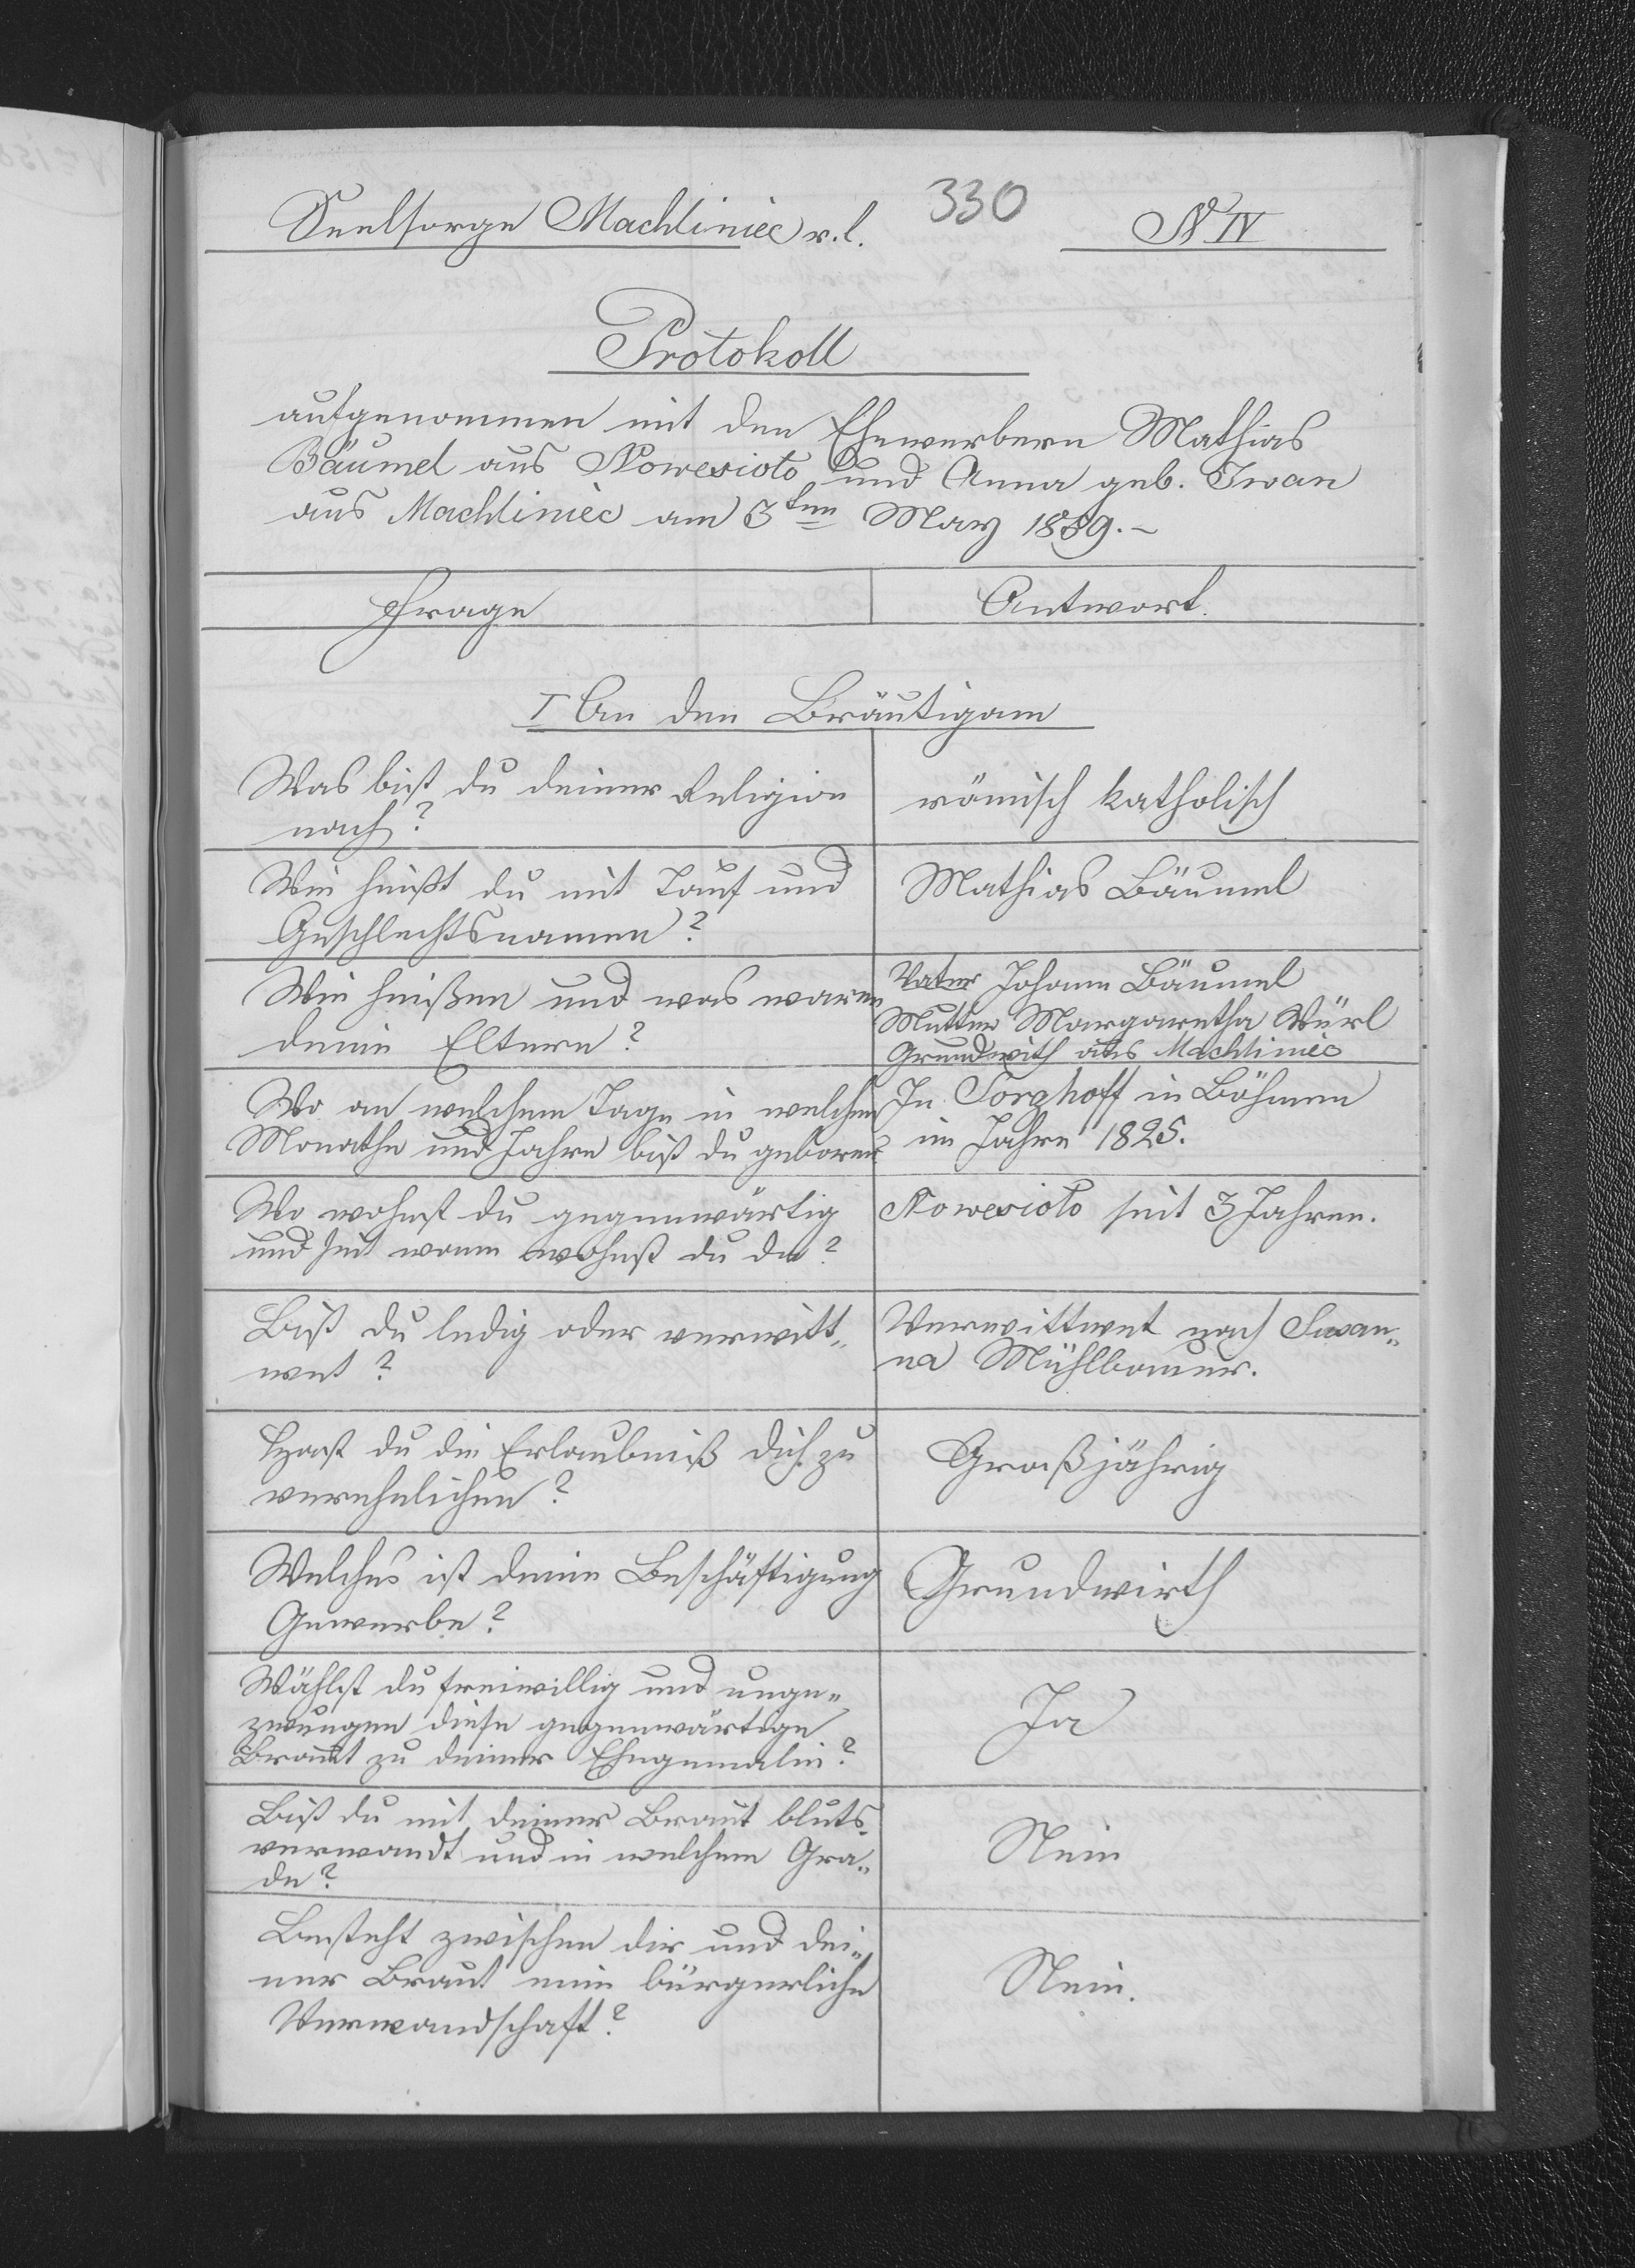 330
Seelsorge Machliniec r. l.
N IV
Protokoll
aufgenommen mit den Ehewerbern Mathias
Bäumel aus Nowesioło und Anna geb. Iwan
aus Machliniec am 3ten May 1889.-
Frage
Antwort.
I An den Bräutigam
Was bist du deiner Religion
nach?
römisch katholisch
Wie heißt du mit Tauf und
Geschlechtsnamen?
Mathias Bäumel
Wie heißen und was waren
deine Eltern?
Vater Johann Bäumel
Mutter Margaretha Würl
Grundwirth aus Machliniec
Wo an welchem Tage in welchem
Monathe und Jahre bist du geboren
In Sorghoff in Böhmen
im Jahre 1825.
Wo wohnst du gegenwärtig
und seit wann wohnst du da?
Nowesioło seit 3 Jahren.
Bist du ledig oder verwitt„
wet?
Verwittwet nach Susan„
na Mühlbauer.
Hast du die Erlaubniß dich zu
verehelichen?
Großjährig
Welches ist deine Beschäftigung
Gewerbe?
Grundwirth
Wählst du freiwillig und unge„
zwungen diese gegenwärtige
Braut zu deiner Ehegemalin?
Ja
Bist du mit deiner Braut bluts„
verwandt und in welchem Gra„
de?
Nein
Besteht zwischen dir und dei„
ner Braut eine bürgerliche
Verwandschaft?
Nein.